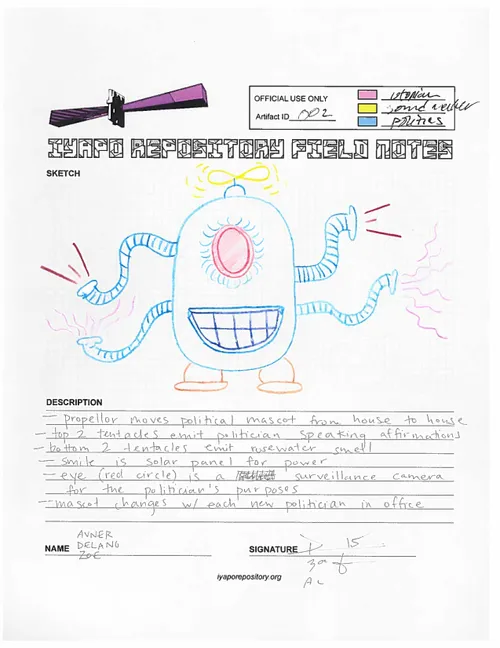 OFFICIAL USE ONLY
Artifact ID 002
utopian
politics
IYAPO REPOSITORY FIELD NOTES
SKETCH
DESCRIPTION
— propellor moves political mascot from house to house
— top 2 tentacles emit politician speaking affirmations
— bottom 2 tentacles emit rosewater smell
— smile is solar panel for power
— eye (red circle) is a surveillance camera
for the politician's purposes
— mascot changes w/ each new politician in office
AVNER
DELANO
ZOE
NAME
SIGNATURE
iyaporepository.org